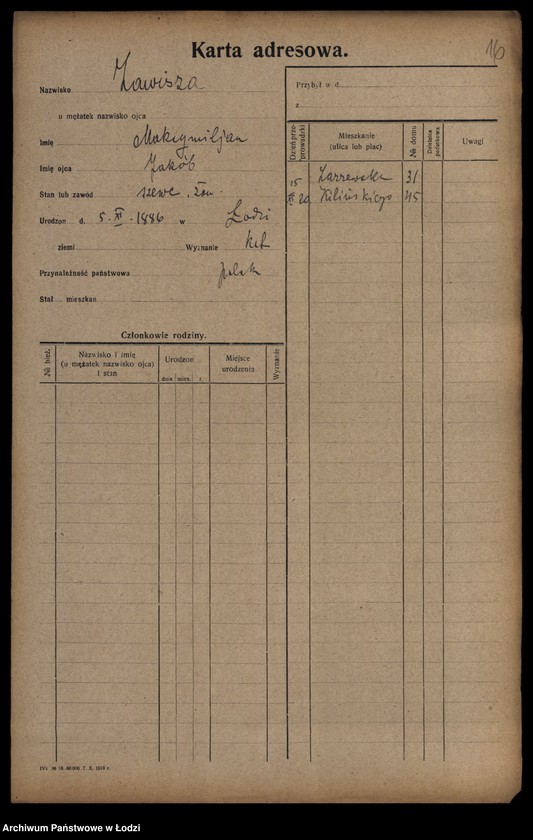 Karta adresowa.
16
Nazwisko Zawisza
u mężatek nazwisko ojca
Imię Maksymiljan
Imię ojca Jakób
Stan lub zawód szewc, żon.
Urodzon d. 5. XI. 1886 w Łodzi
ziemi Wyznanie kat
Przynależność państwowa polsk
Stał mieszkan
Przybył w d.
z
Dzień przeprowadzki
Mieszkanie
(ulica lub plac)
№ domu
Uwagi
15 Zarzewska 31
20 Kilińskiego 45
Członkowie rodziny.
№ bież.
Nazwisko i imię
(u mężatek nazwisko ojca)
i stan
Urodzon
dnia mies. r.
Miejsce
urodzenia
Wyznanie
Archiwum Państwowe w Łodzi